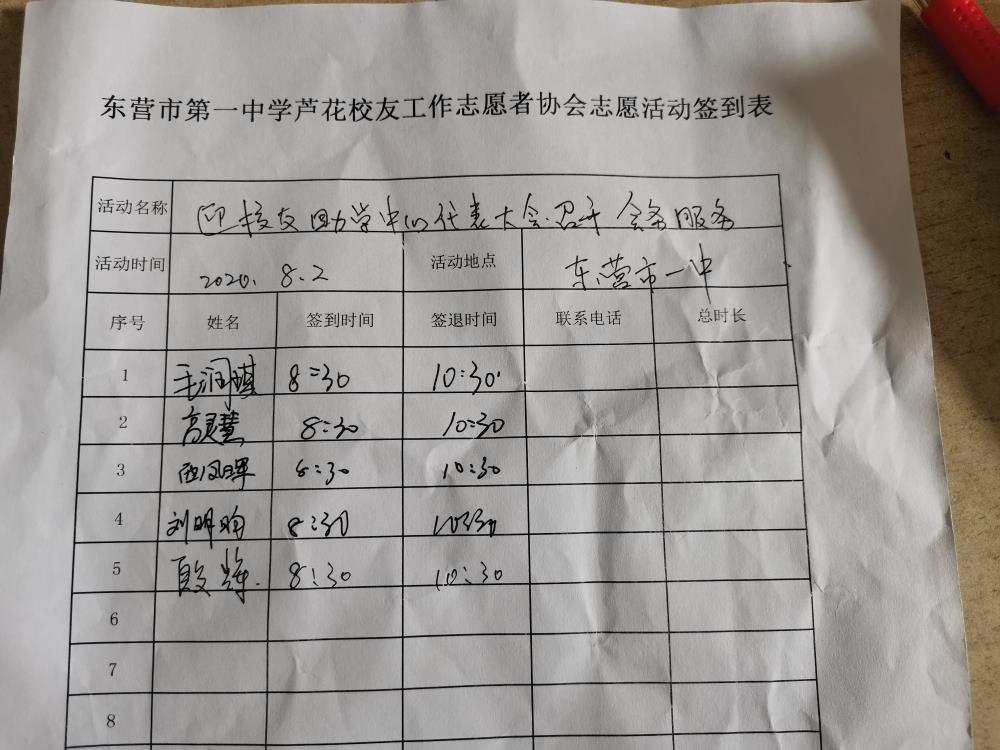 东营市第一中学芦花校友工作志愿者协会志愿活动签到表
活动名称 迎校友助学中心代表大会召开 会务服务
活动时间 2020.8.2 活动地点 东营市一中
序号 姓名 签到时间 签退时间 联系电话 总时长
1 毛润琪 8:30 10:30
2 高灵慧 8:30 10:30
3 8:30 10:30
4 刘明昀 8:30 10:30
5 8:30 10:30
6
7
8